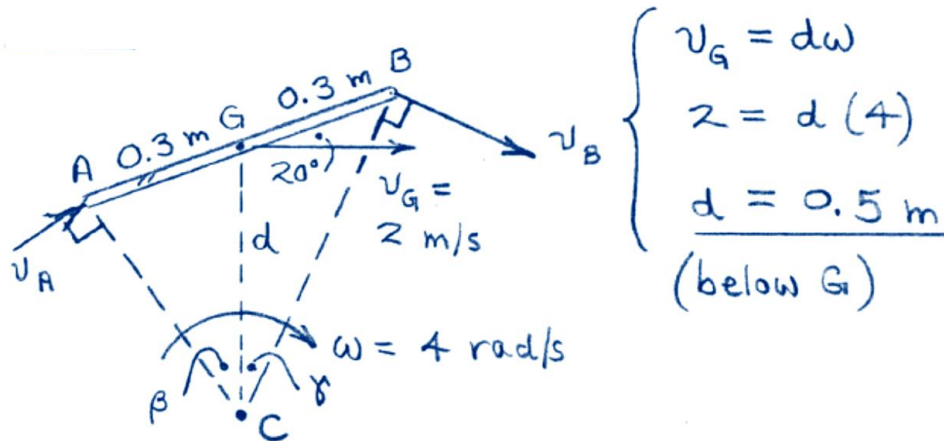 B
0.3 m
G
0.3 m
A
20°
v_G =
2 m/s
v_B
v_A
d
ω = 4 rad/s
β
γ
C
v_G = dω
2 = d (4)
d = 0.5 m
(below G)